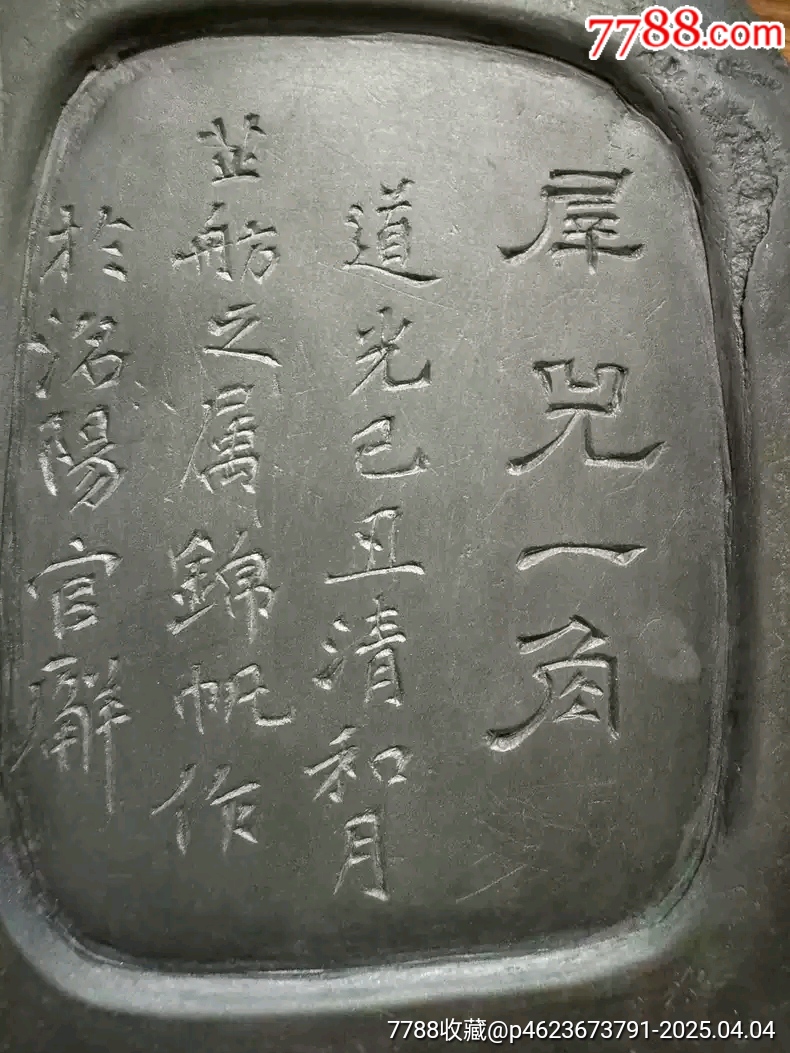 7788.com
犀兕一角
道光己丑清和月
芷舫之属錦帆作
於洛陽官廨
7788收藏@p4623673791-2025.04.04